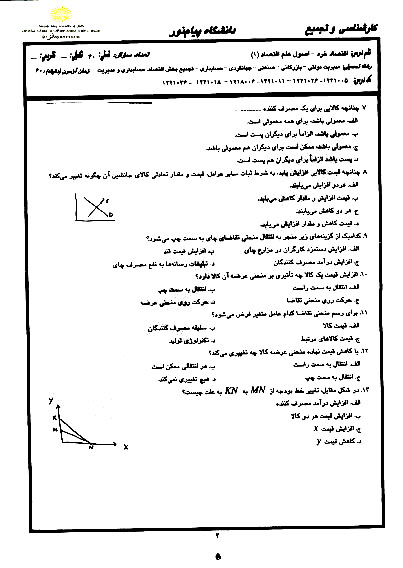 کارشناسی و تجمیع
دانشگاه پیام‌نور
نام درس: اقتصاد خرد - اصول علم اقتصاد (۱)
تعداد سئوالات
۷. چنانچه کالایی برای یک مصرف کننده
الف. معمولی باشد، برای همه معمولی است.
ب. معمولی باشد، الزاماً برای دیگران پست است.
ج. معمولی باشد، ممکن است برای دیگران هم معمولی باشد.
د. پست باشد الزاماً برای دیگران هم پست است.
۸. چنانچه قیمت کالایی افزایش یابد، به شرط ثبات سایر عوامل، قیمت و مقدار تعادلی کالای جانشین آن چگونه تغییر می‌کند؟
الف. هر دو افزایش می‌یابند.
ب. قیمت افزایش و مقدار کاهش می‌یابد.
ج. هر دو کاهش می‌یابند.
د. قیمت کاهش و مقدار افزایش می‌یابد.
D
۹. کدامیک از گزینه‌های زیر منجر به انتقال منحنی تقاضای چای به سمت چپ می‌شود؟
الف. افزایش دستمزد کارگران در مزارع چای
ب. افزایش قیمت قند
ج. افزایش درآمد مصرف کنندگان
د. تبلیغات رسانه‌ها به نفع مصرف چای
۱۰. افزایش قیمت یک کالا چه تأثیری بر منحنی عرضه آن کالا دارد؟
الف. انتقال به سمت راست
ب. انتقال به سمت چپ
ج. حرکت روی منحنی تقاضا
د. حرکت روی منحنی عرضه
۱۱. برای رسم منحنی تقاضا کدام عامل متغیر فرض می‌شود؟
الف. قیمت کالا
ب. سلیقه مصرف کنندگان
ج. قیمت کالاهای مرتبط
د. تکنولوژی تولید
۱۲. با کاهش قیمت نهاده منحنی عرضه کالا چه تغییری می‌کند؟
الف. انتقال به سمت راست
ب. هر انتقالی ممکن است
ج. انتقال به سمت چپ
د. هیچ تغییری نمی‌کند
۱۳. در شکل مقابل، تغییر خط بودجه از MN به KN به علت چیست؟
الف. افزایش درآمد مصرف کننده
ب. افزایش قیمت هر دو کالا
ج. افزایش قیمت X
د. کاهش قیمت Y
Y
K
M
N
X
۲
۵